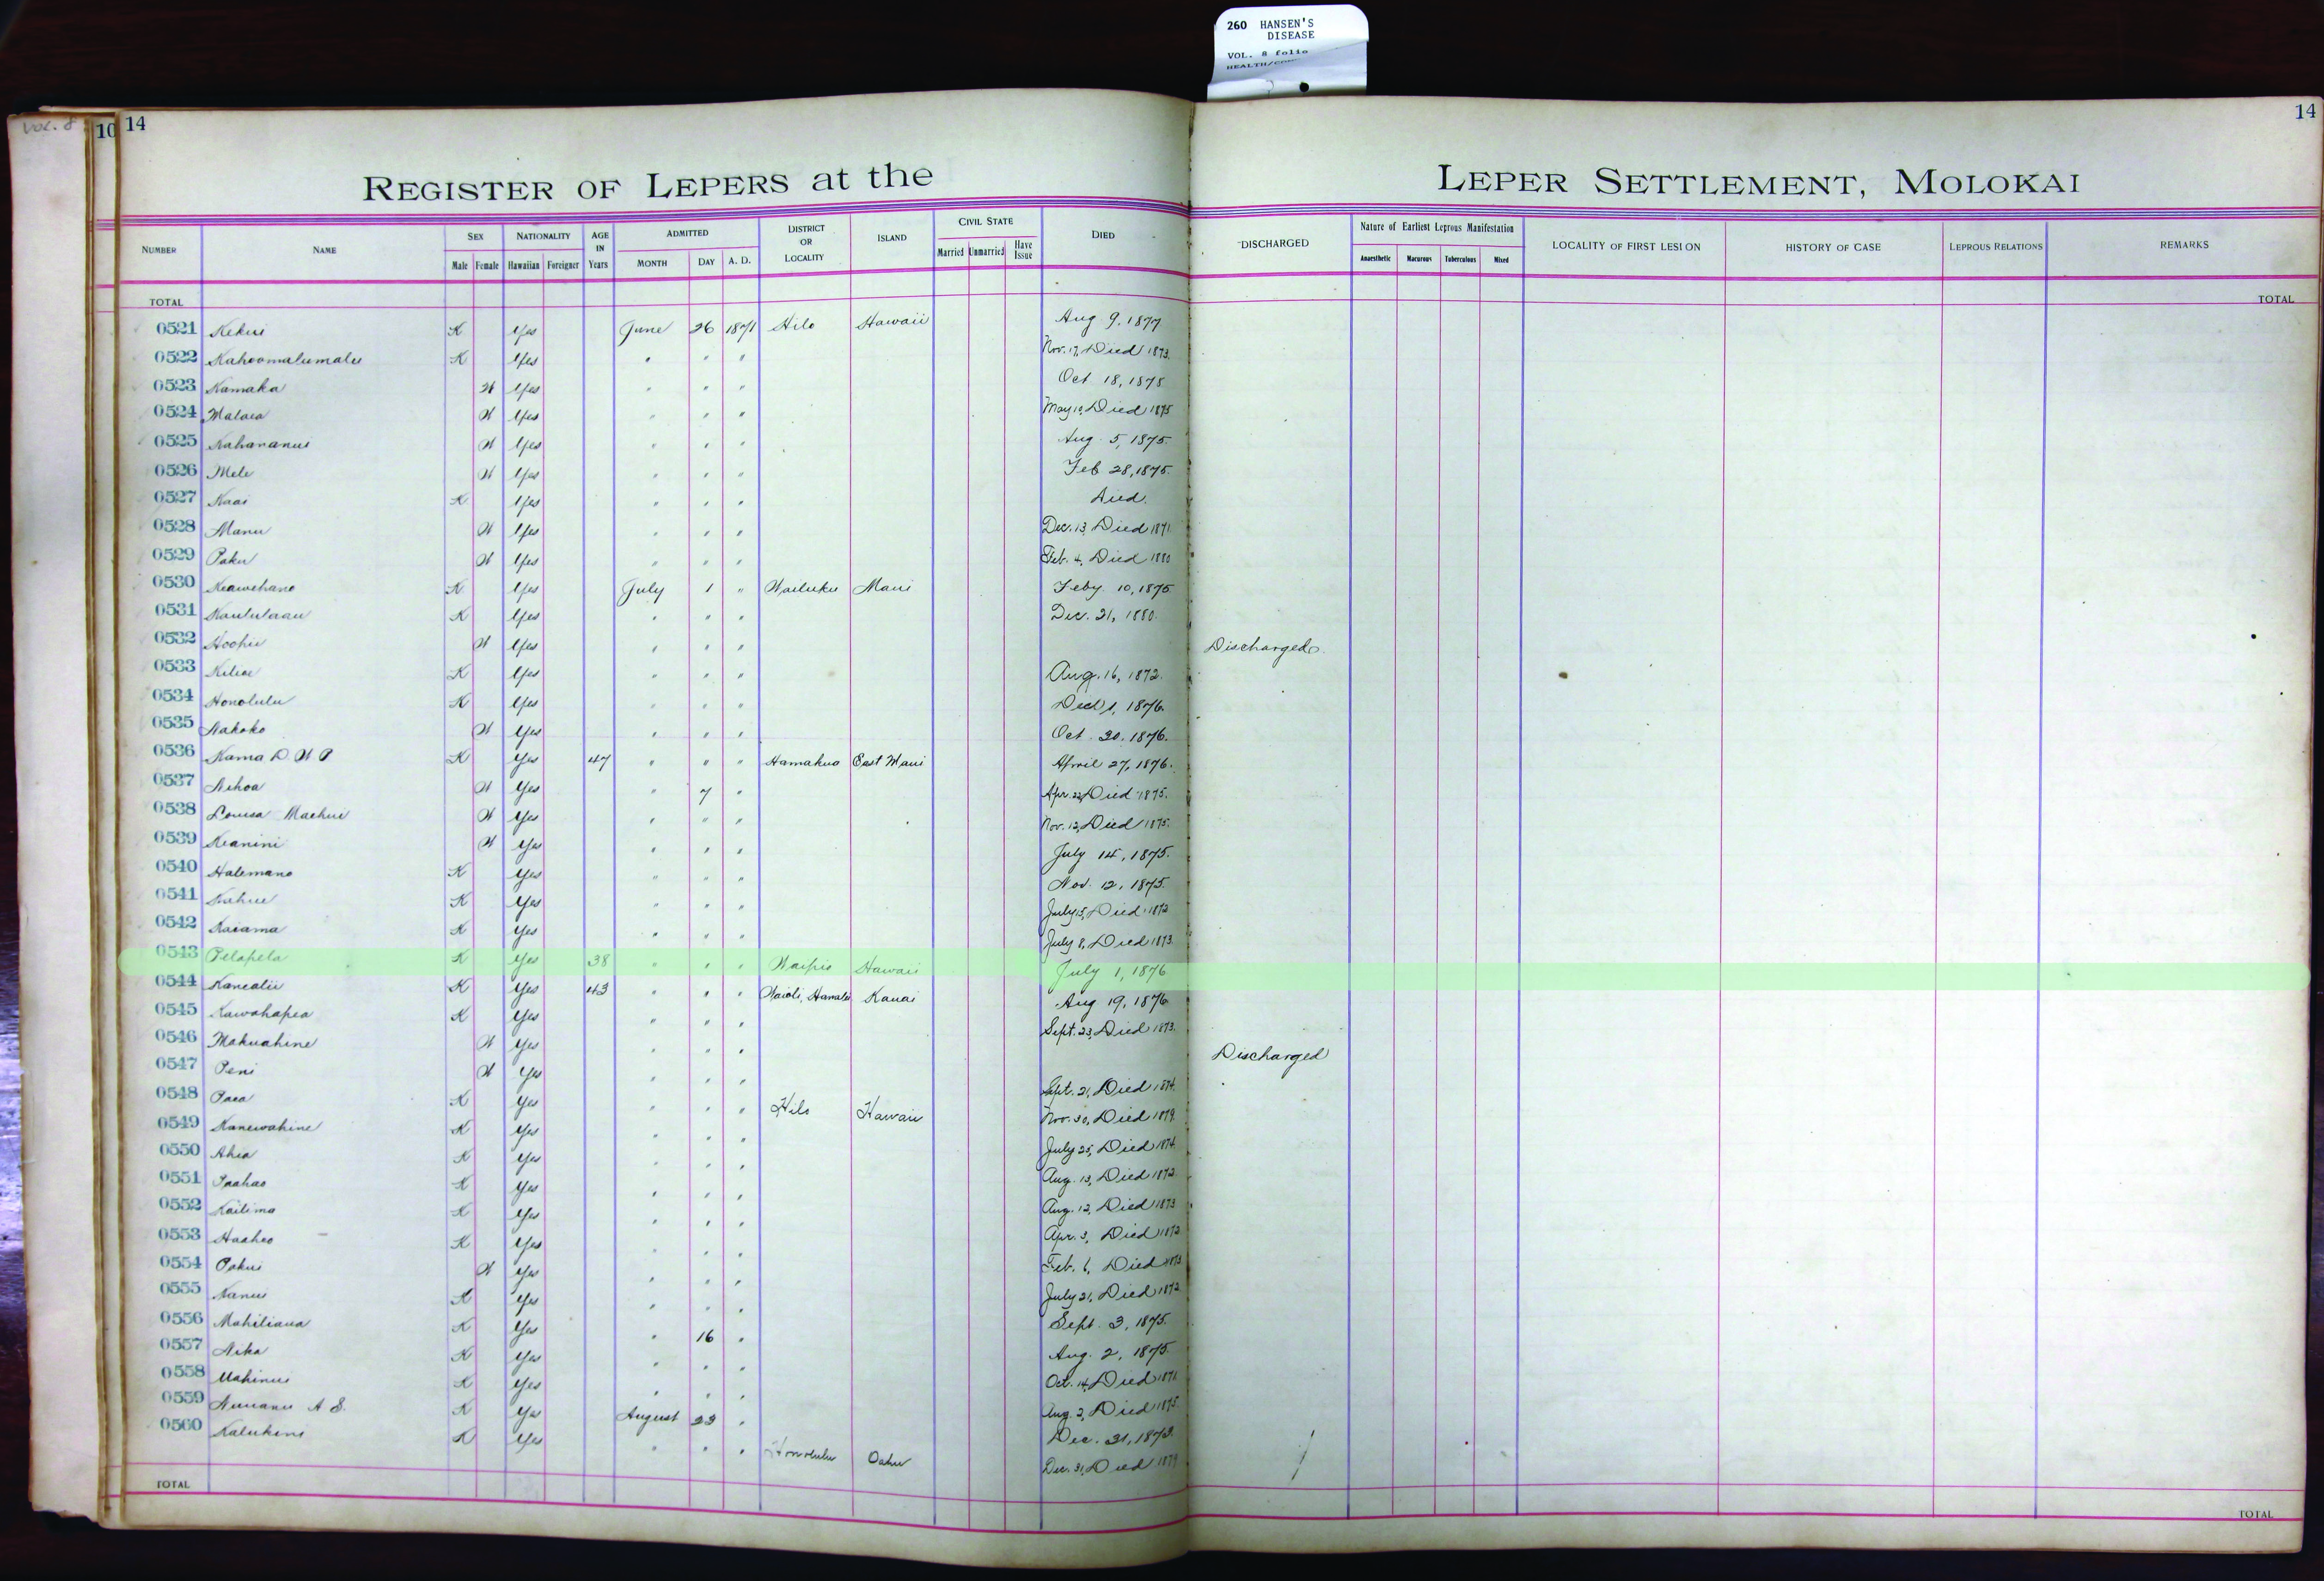 260 HANSEN'S
DISEASE
VOL. 8 folio
Vol. 8
10
14
14
REGISTER OF LEPERS at the LEPER SETTLEMENT, MOLOKAI
NUMBER NAME SEX NATIONALITY AGE IN Years ADMITTED DISTRICT OR LOCALITY ISLAND CIVIL STATE DIED DISCHARGED Nature of Earliest Leprous Manifestation LOCALITY OF FIRST LESION HISTORY OF CASE LEPROUS RELATIONS REMARKS
Male Female Hawaiian Foreigner MONTH DAY A. D. Married Unmarried Have Issue Anaesthetic Macurous Tuberculous Mixed
TOTAL TOTAL
0521 Kekui K Yes June 26 1871 Hilo Hawaii Aug 9, 1877
0522 Kahoomalumalu K Yes " " " Nov. 17, Died 1873.
0523 Kamaka W Yes " " " Oct 18, 1875
0524 Malaea W Yes " " " May 10, Died 1875
0525 Kahananui W Yes " " " Aug. 5, 1875.
0526 Mele W Yes " " " Feb 28, 1875.
0527 Kaai K Yes " " " Died.
0528 Manu W Yes " " " Dec. 13, Died 1871
0529 Paku W Yes " " " Feb. 4, Died 1880
0530 Keawehano K Yes July 1 " Wailuku Maui Feby 10, 1875
0531 Kaululaau K Yes " " " Dec. 21, 1880.
0532 Hoohii W Yes " " " Discharged.
0533 Kiliae K Yes " " " Aug. 16, 1872.
0534 Honolulu K Yes " " " 1, 1876.
0535 Nakoko W Yes " " " Oct. 20, 1876.
0536 Kama D. W P K Yes 47 " " " Hamakua East Maui April 27, 1876.
0537 Nihoa W Yes " 7 " Apr. 22, Died 1875.
0538 Louisa Maehui W Yes " " " Nov. 12, Died 1875.
0539 Keanini W Yes " " " July 14, 1875.
0540 Halemano K Yes " " " Nov. 12, 1875.
0541 Kahue K Yes " " " July 15, Died 1872
0542 Kaiama K Yes " " " July 8, Died 1873.
0543 Pelapela K Yes 38 " " " Waipio Hawaii July 1, 1876
0544 Kanealii K Yes 43 " " " Waioli, Hanalei Kauai Aug 19, 1876
0545 Kawahapea K Yes " " " Sept. 23, Died 1873.
0546 Makuahine W Yes " " " Discharged
0547 Peni W Yes " " " Sept. 21, Died 1874.
0548 Paea K Yes " " " Hilo Hawaii Nov. 30, Died 1879.
0549 Kanewahine K Yes " " " July 25, Died 1874.
0550 Ahia K Yes " " " Aug. 13, Died 1872.
0551 Paahao K Yes " " " Aug. 12, Died 1873
0552 Kailima K Yes " " " Apr. 3, Died 1872
0553 Haaheo K Yes " " " Feb. 6, Died 1873
0554 Pakui W Yes " " " July 21, Died 1872
0555 Nanui K Yes " " " Sept. 3, 1875.
0556 Mahiliaua K Yes " 16 " Aug. 2, 1875.
0557 Nika K Yes " " " Oct. 14, Died 1871.
0558 Mahinui K Yes " " " Aug. 2, Died 1875.
0559 Nuuanu A S. K Yes August 23 " Dec. 31, 1873.
0560 Kalukini K Yes " " " Honolulu Oahu Dec. 31, Died 1879
TOTAL TOTAL